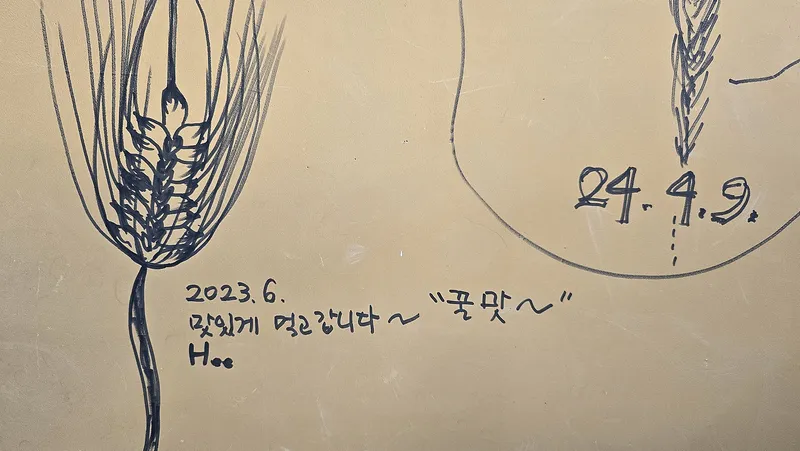 2023.6.
맛있게 먹고갑니다~ "꿀맛~"
Hee
24.4.9.